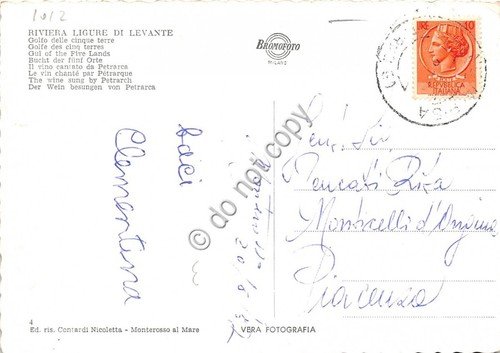 1012
RIVIERA LIGURE DI LEVANTE
Golfo delle cinque terre
Golfe des cinq terres
Gul of the Five Lands
Bucht der fünf Orte
Il vino cantato da Petrarca
Le vin chanté par Pétrarque
The wine sung by Petrarch
Der Wein besungen von Petrarca
BROMOFOTO
MILANO
10
REPVBBLICA
ITALIANA
Gen. Sig.
Rita
Monticelli d'Ongina
Piacenza
baci
Clementina
© do not copy
4
Ed. ris. Contardi Nicoletta - Monterosso al Mare
VERA FOTOGRAFIA